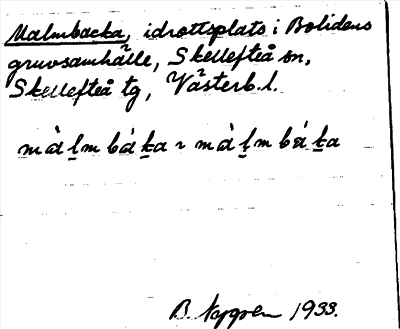 Malmbacka, idrottsplats i Bolidens
gruvsamhälle, Skellefteå sn,
Skellefteå tg, Västerb. l.
màl̲m bák̲a ~ màl̲m bák̲a
B. Nygren 1933.